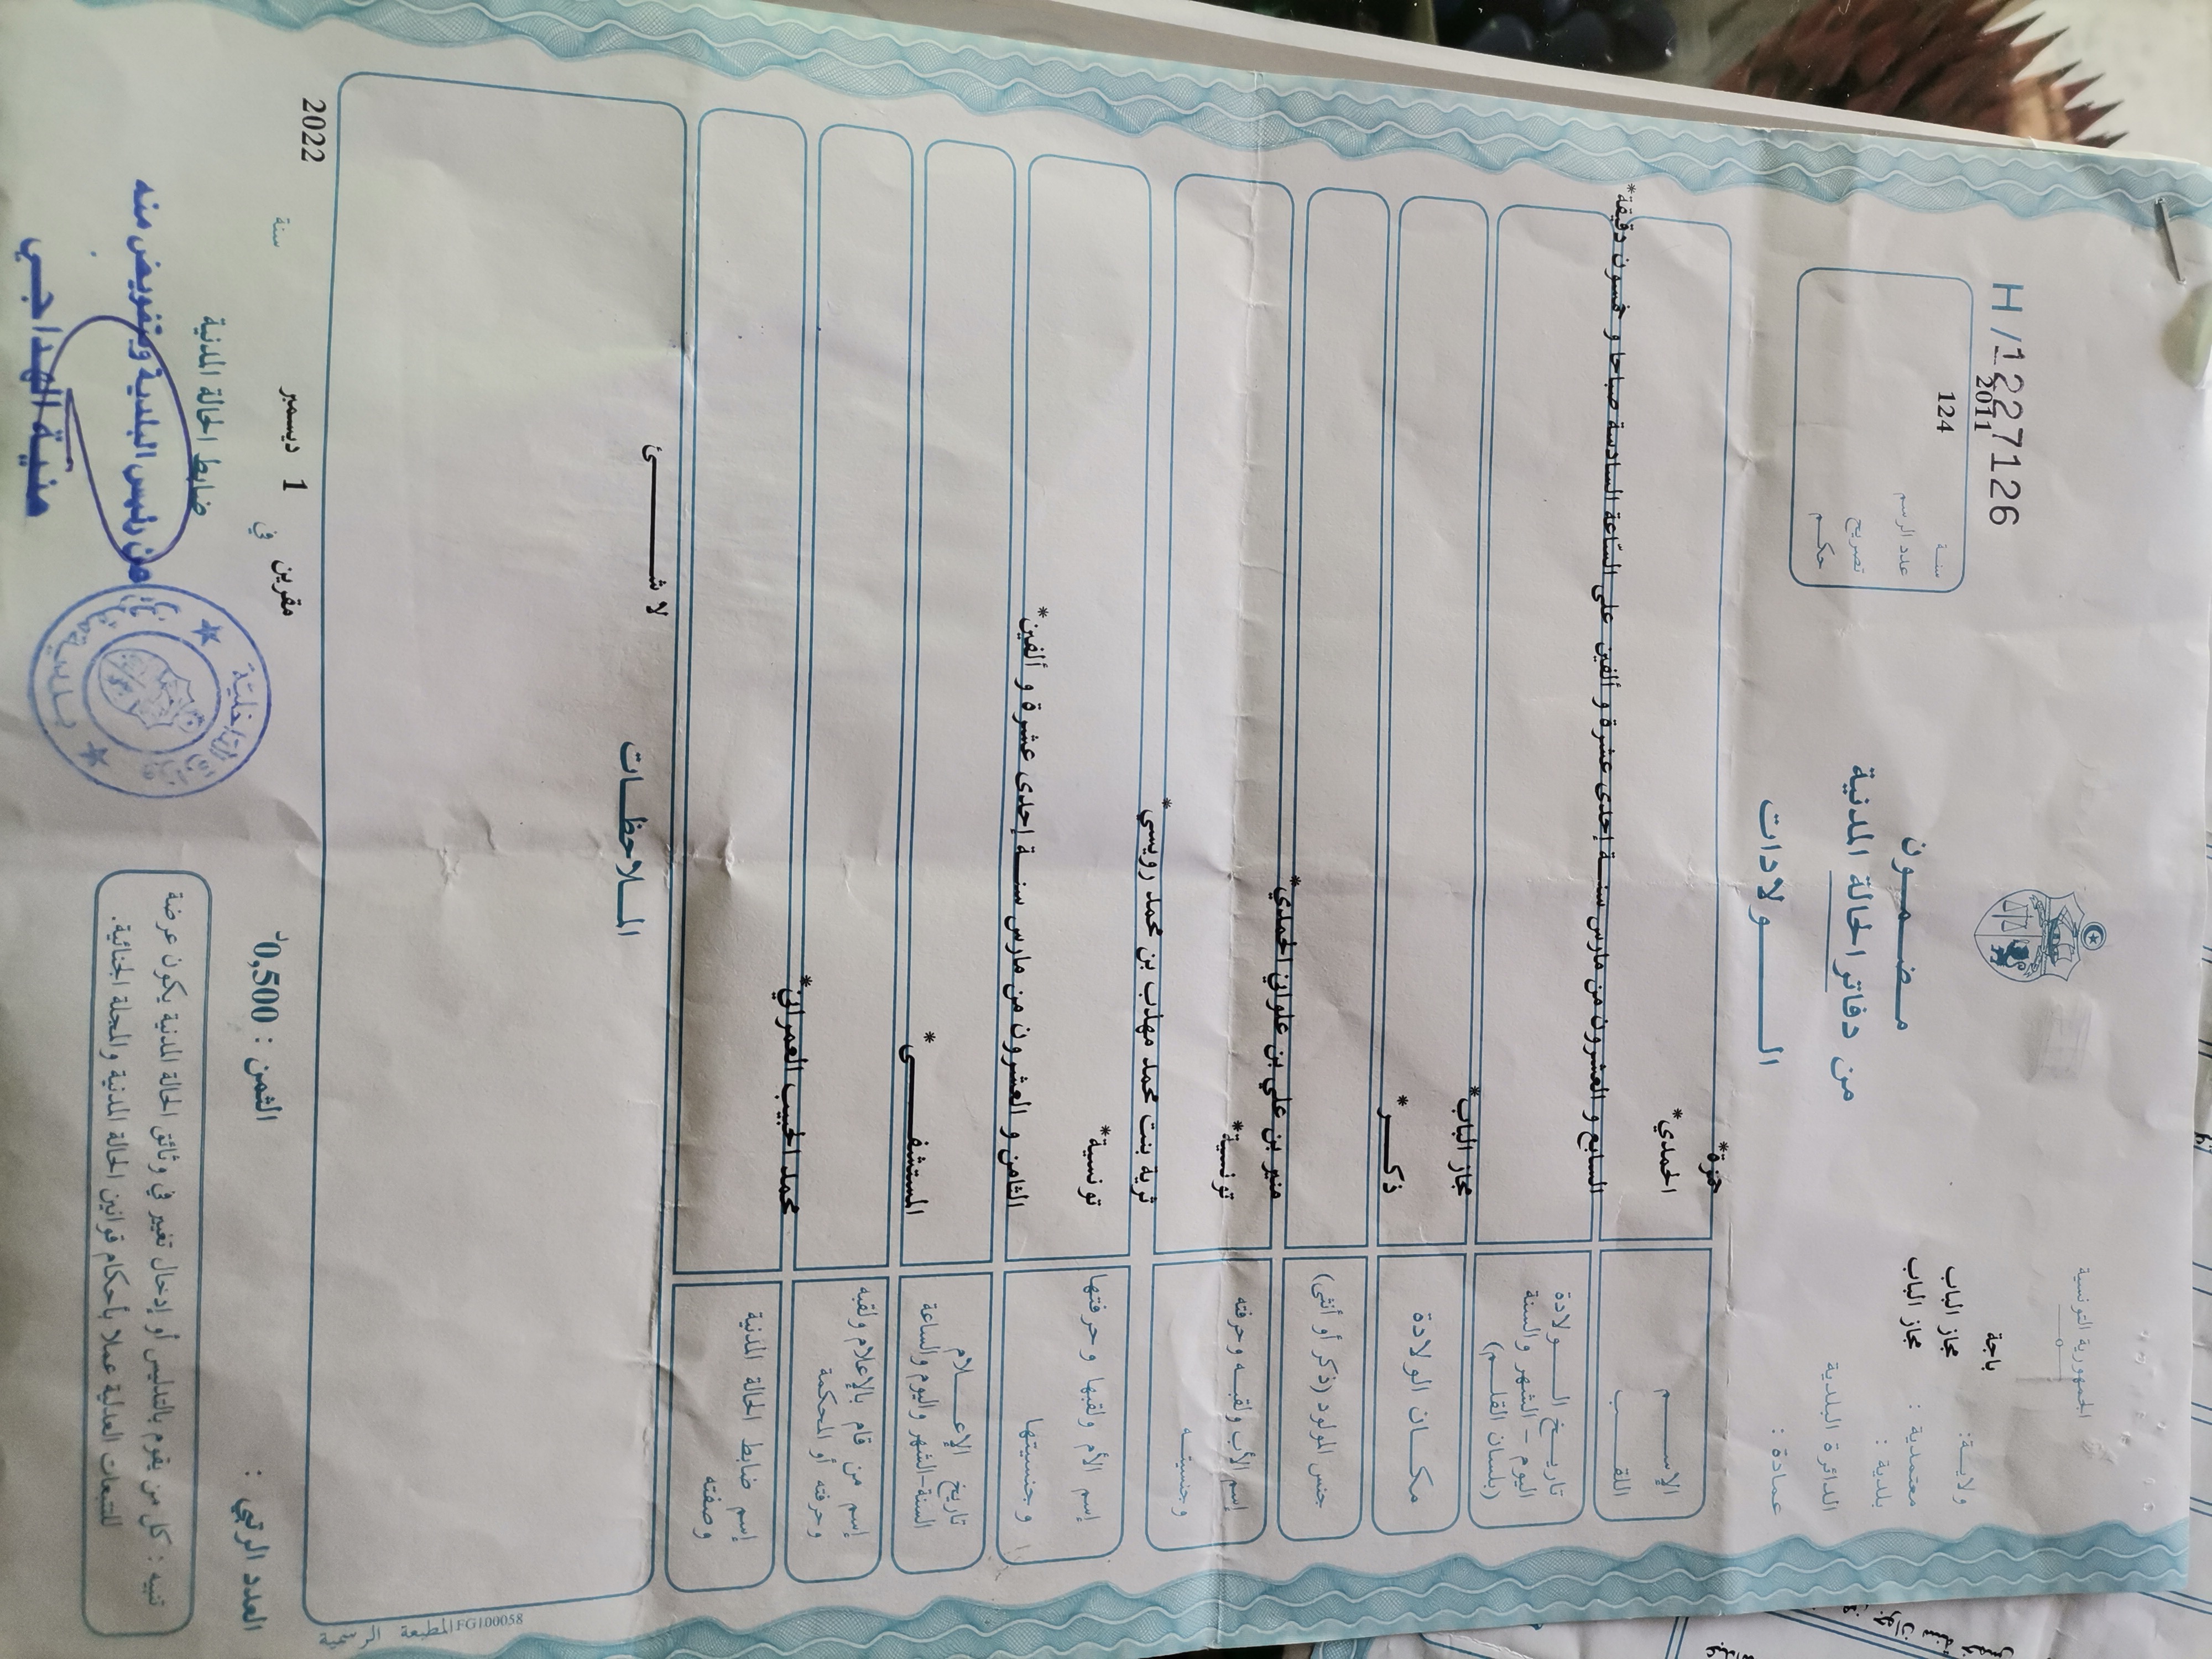 H/1227126
2011
124
سنة
عدد الرسم
تصريح
حكم
الجمهورية التونسية
ولاية: باجة
معتمدية: مجاز الباب
بلدية: مجاز الباب
الدائرة البلدية
عمادة:
مضمون
من دفاتر الحالة المدنية
الولادات
الإسم
حمزة*
اللقب
الحمدي*
تاريخ الولادة
اليوم - الشهر والسنة
(بلسان القلم)
السابع و العشرون من مارس سنة إحدى عشرة و ألفين على الساعة السادسة صباحا و خمسون دقيقة*
مكان الولادة
مجاز الباب*
جنس المولود (ذكر أو أنثى)
ذكر*
إسم الأب ولقبه وحرفته
منير بن علي بن علواني الحمدي*
وجنسيته
تونسية*
إسم الأم ولقبها وحرفتها
ثرية بنت محمد مهذب بن محمد رويسي*
وجنسيتها
تونسية*
تاريخ الإعلام
السنة-الشهر واليوم والساعة
الثامن و العشرون من مارس سنة إحدى عشرة و ألفين*
إسم من قام بالإعلام ولقبه
وحرفته أو المحكمة
المستشفى*
إسم ضابط الحالة المدنية
وصفته
محمد الحبيب العمراني*
الملاحظات
لا شئ
المطبعة الرسمية FG100058
العدد الرتبي :
الثمن : 0,500د
مقرين في 1 ديسمبر سنة 2022
ضابط الحالة المدنية
من رئيس البلدية وبتفويض منه
منية الهداجي
تنبيه : كل من يقوم بالتدليس أو إدخال تغيير في وثائق الحالة المدنية يكون عرضة
للتتبعات العدلية عملا بأحكام قوانين الحالة المدنية والمجلة الجنائية.